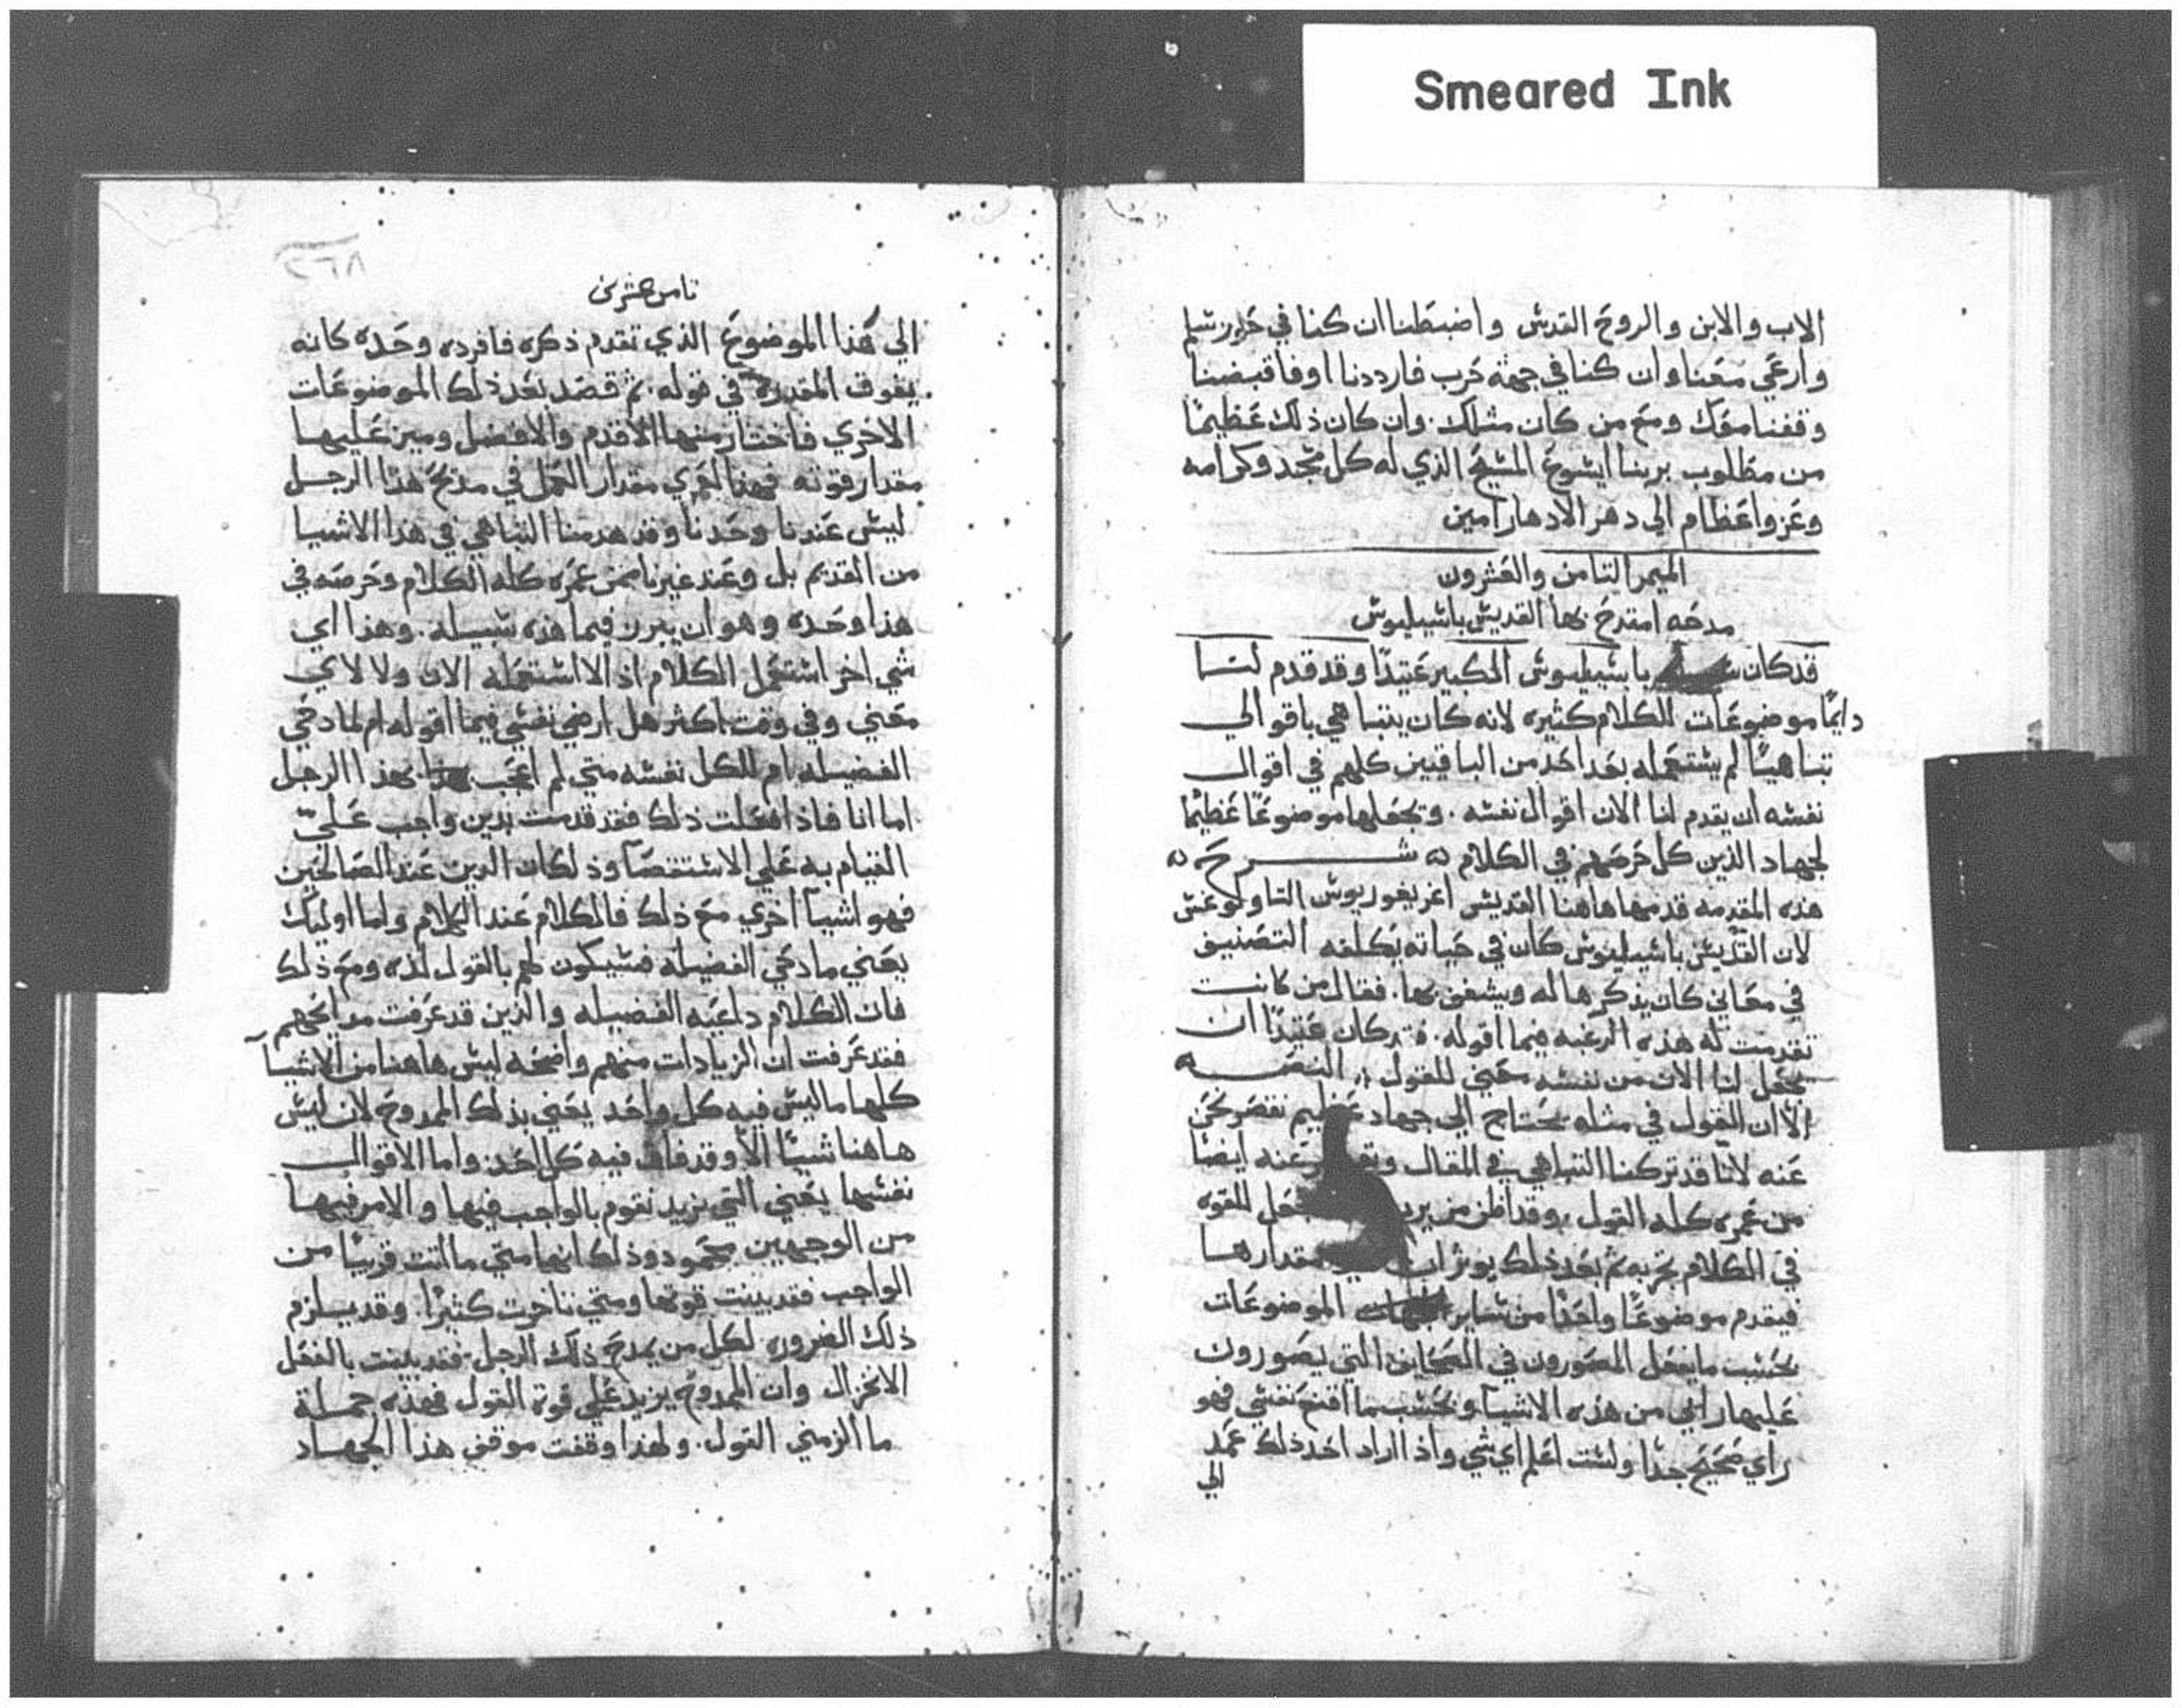 Smeared Ink
الاب والابن والروح القدس واضبطنا ان كنا في حرز سلم
وارعي معنا وان كنا في جهة حرب فارددنا او فاقبضنا
وقفنا معك ومع من كان مثلك. وان كان ذلك عظيمًا
من مطلوب بربنا ايسوع المسيح الذي له كل مجد وكرامه
وعز واعظام الي دهر الادهار امين
الميمر التامن والعشرون
مدحه امتدح بها القديس باسيليوس
قد كان باسيليوس الكبير عتيدًا وقد قدم لنا
دايمًا موضوعات للكلام كثيره لانه كان يتباهي باقوالي
تباهيًا لم يستعمله بعد احد من الباقيين كلهم في اقوال
نفسه ان يقدم لنا الان اقوال نفسه. وتجعلها موضوعًا عظيمًا
لجهاد الذين كل حرصهم في الكلام شرح
هذه المقدمه قدمها هاهنا القديس اغريغوريوس التاولوغس
لان القديس باسيليوس كان في حياته يكلفه التصنيف
في معاني كان يذكرها له ويشغف بها. فقال من كانت
تقدمت له هذه الرغبه فيما اقوله. قد كان عتيدًا ان
يجعل لنا الان من نفسه معني للقول النص
الا ان القول في مثله يحتاج الي جهاد عظيم نقصر نحن
عنه لانا قد تركنا التباهي في المقال عنه ايضًا
من عمره كله القول. وقد اظن من يريد يجعل للقوه
في الكلام تجربه ثم بعد ذلك يوثر ان مقدارها
فيقدم موضوعًا واحدًا من ساير الموضوعات
بحسب ما يفعل المصورون في الصحايف التي يصورون
عليها راي من هذه الاشيا وبحسب ما اقنع نفسي فهو
راي صحيح جدًا ولست اعلم اي شي واذ اراد احد ذلك عمد
الي
٢٦٨
تامن عشرين
الي هذا الموضوع الذي تقدم ذكره فافرده وحده كانه
يفوق المقدره في قوله. ثم قصد بعد ذلك الموضوعات
الاخري فاختار منها الاقدم والافضل وميز عليها
مقدار قوته فهذا لعمري مقدار العمل في مديح هذا الرجل
ليس عندنا وحدنا وقد هدمنا التباهي في هذا الاشيا
من القديم بل وعند غيرنا ممن عمره كله الكلام وحرصه في
هذا وحده وهو ان يبرز فيما هذه سبيله. وهذا اي
شي اخر استعمل الكلام اذ الا استعمله الان ولا لاي
معني وفي وقت اكثر هل ارضي نفسي فيما اقوله ام لمادحي
الفضيله ام للكل نفسه متي لم اعجب بهذا الرجل
اما انا فاذا فعلت ذلك فقد قدمت بدين واجب عليّ
القيام به علي الاستقصا وذلك ان الدين عند الصالحين
فهو اشيا اخري مع ذلك فالكلام عند الكلام واما اوليك
يعني مادحي الفضيله فسيكون لهم بالقول لذه ومع ذلك
فان الكلام داعيه الفضيله والذين قد عرفت مدايحهم
فقد عرفت ان الزيادات منهم واضحه ليس هاهنا من الاشيا
كلها ما ليس فيه كل واحد يعني بذلك الممدوح لان ليس
هاهنا شيئًا الا وقد فاق فيه كل احد واما الاقوال
نفسها يعني التي نريد نقوم بالواجب فيها والامر فيها
من الوجهين محمود وذلك انها متي ما اتت قريبًا من
الواجب فقد بينت قوتها ومتي تاخرت كثيرًا. وقد يلزم
ذلك الضروره لكل من يمدح ذلك الرجل. فقد بينت بالفعل
الانخزال وان الممدوح يزيد علي قوة القول فهذه جملة
ما الزمني القول. ولهذا وقفت موقف هذا الجهاد